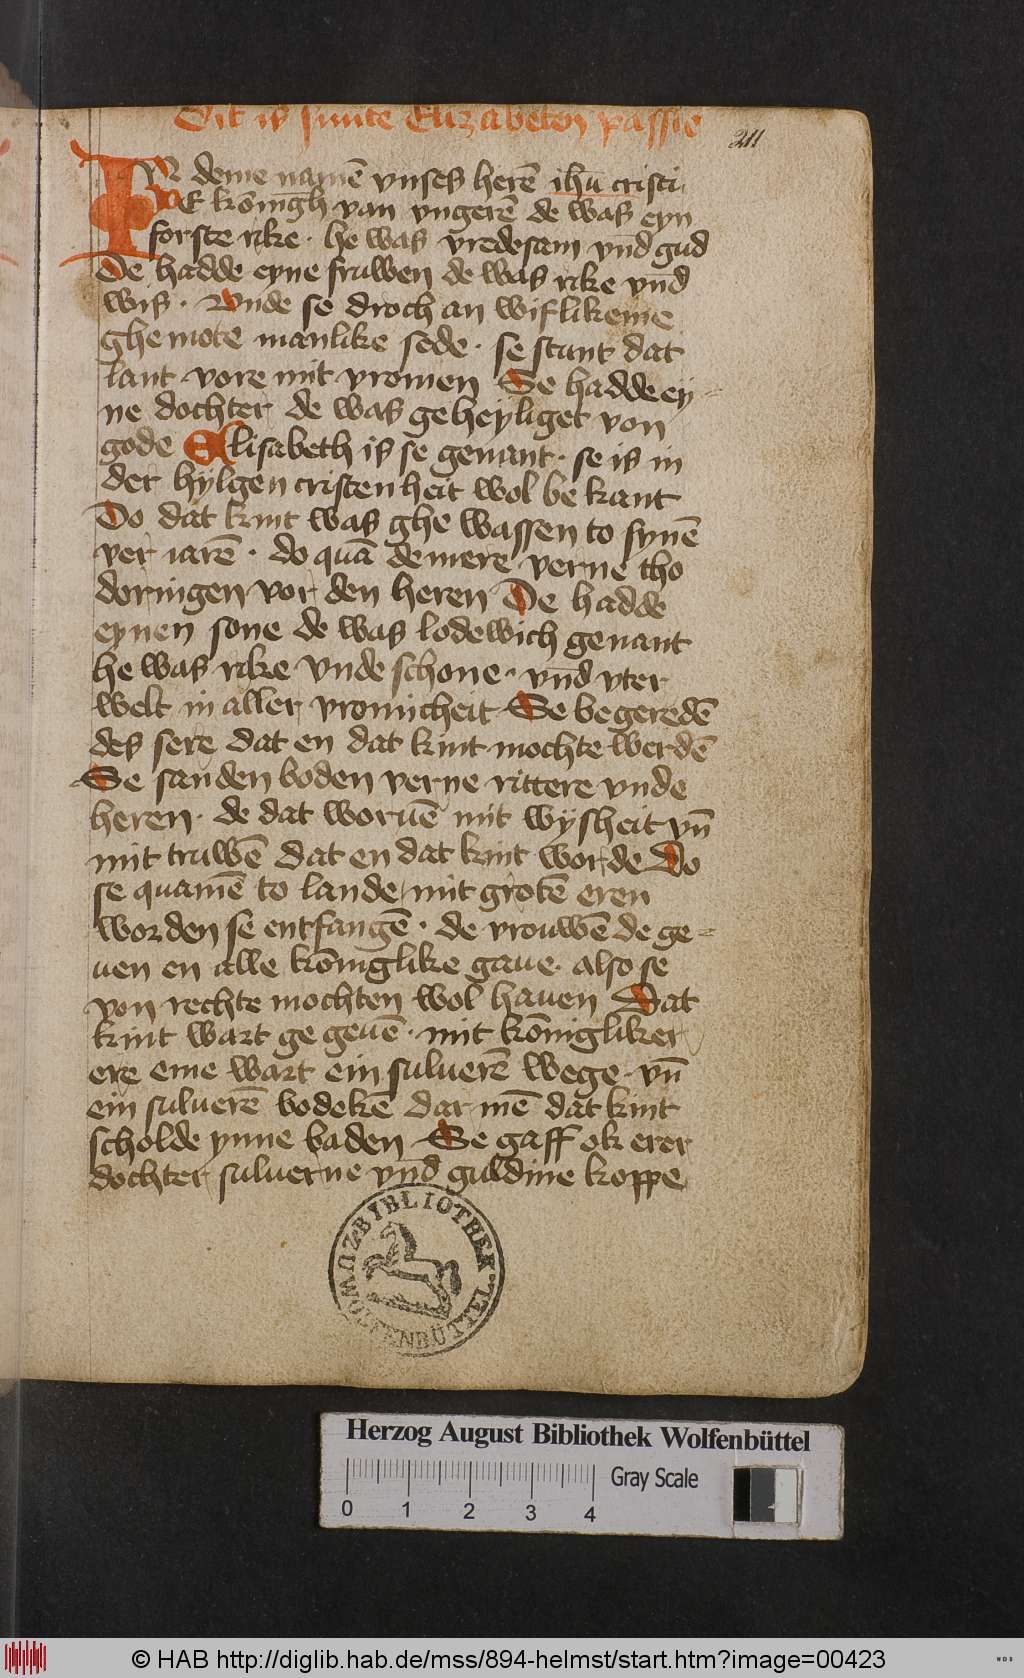 Dit is sunte Elizabeten passie
211
IN deme namē vnses herē ihū cristi
DE kōnigh van vngerē de was eyn
forste rike · he was vredesam vnd gud
De hadde eyne fruwen de was rike vnd
wis · Vnde se droch an wiflikeme
ghemote manlike sede · se stunt dat
lant vore mit vromen Se hadde ey-
ne dochter de was geheyliget von
gode Elisabeth is se genant · se is in
der hylgen cristenheit wol bekant
Do dat kint was ghewassen to synē
ver iarē · do quā de mere verne tho
doringen vor den heren De hadde
eynen sone de was lodewich genant
he was rike vnde schone · vnd vter
welt in aller vromicheit Se begeredē
des sere dat en dat kint mochte werdē
Se sanden boden verne rittere vnde
heren · de dat woruē mit wysheit vñ
mit truwē dat en dat kint worde Do
se quamē to lande mit grotē eren
worden se entfangē · de vrouwē de ge-
uen en alle kōniglike gaue · also se
von rechte mochten wol hauen Dat
kint wart gegeuē · mit kōnigliker
ere eme wart ein suluerē wege · vñ
ein suluerē bodekē dar mē dat kint
scholde ynne baden Se gaff ok erer
dochter suluerne vnd guldine koppe
BIBLIOTHEK
ZU WOLFENBÜTTEL
Herzog August Bibliothek Wolfenbüttel
Gray Scale
0 1 2 3 4
© HAB http://diglib.hab.de/mss/894-helmst/start.htm?image=00423